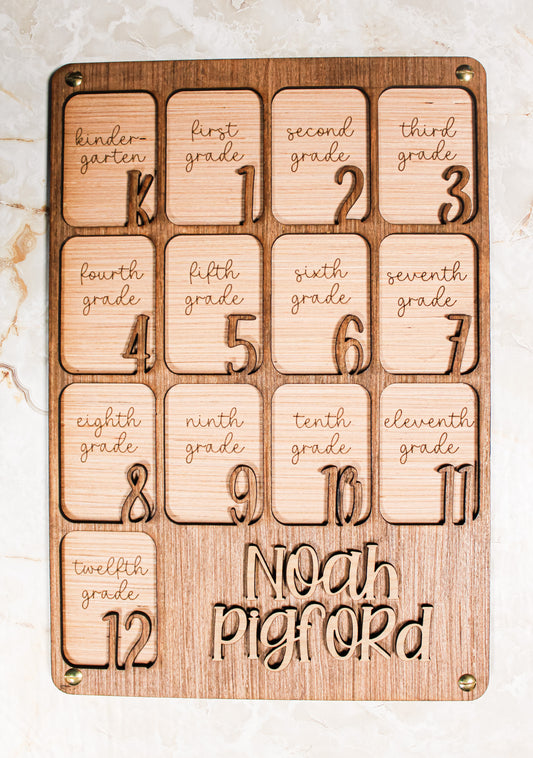 kinder-
garten
K
first
grade
1
second
grade
2
third
grade
3
fourth
grade
4
fifth
grade
5
sixth
grade
6
seventh
grade
7
eighth
grade
8
ninth
grade
9
tenth
grade
10
eleventh
grade
11
twelfth
grade
12
Noah
Pigford